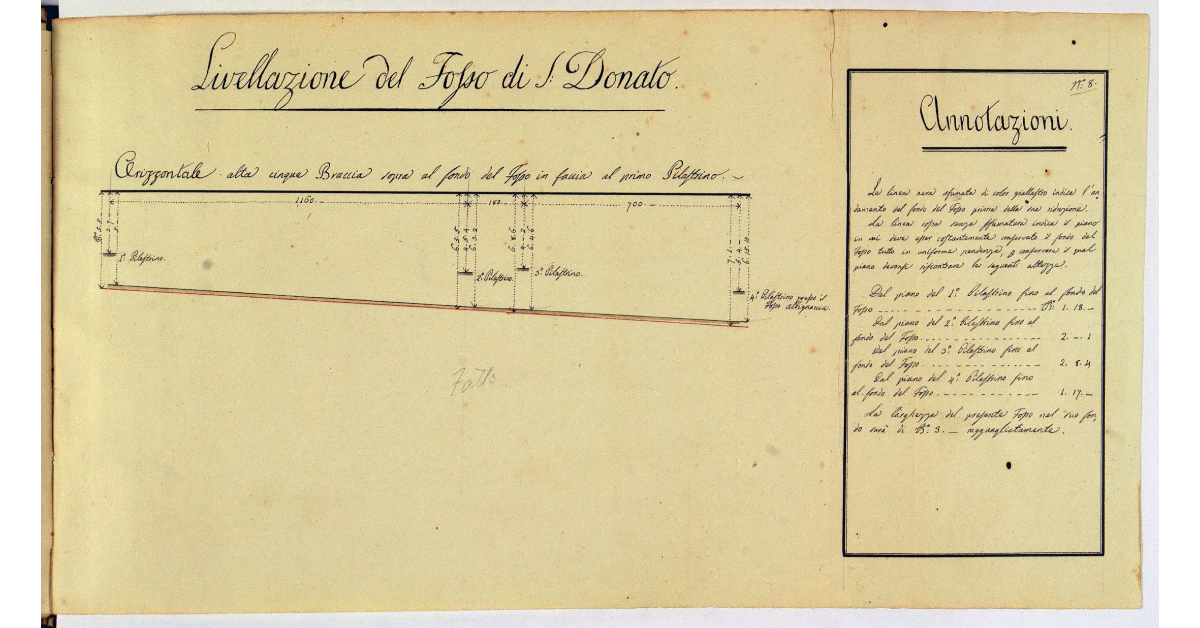 Livellazione del Fosso di S. Donato.
Orizzontale alta cinque Braccia sopra al fondo del Fosso in faccia al primo Pilastrino. –
1160. 180 700
1º Pilastrino.
2º Pilastrino.
3º Pilastrino.
4º Pilastrino presso il
Fosso
Fatto
Nº 8.
Annotazioni.
La linea nera sfumata di color giallastro indica l'an-
damento del fondo del Fosso prima della sua riduzione.
La linea rossa senza sfumatura indica il piano
in cui deve esser costantemente conservato il fondo del
Fosso tutto in uniforme pendenza, e conservare il qual
piano devonsi riscontrare le seguenti altezze.
Dal piano del 1º Pilastrino fino al fondo del
Fosso - - - - - - - - - - Bª 1. 18. –
Dal piano del 2º Pilastrino fino al
fondo del Fosso - - - - - - - - - - 2. – . 1
Dal piano del 3º Pilastrino fino al
fondo del Fosso - - - - - - - - - - 2. 8. 4
Dal piano del 4º Pilastrino fino
al fondo del Fosso - - - - - - - - - - 1. 17. –
La larghezza del presente Fosso nel suo fon-
do sarà di Bª 3. – ragguagliatamente.